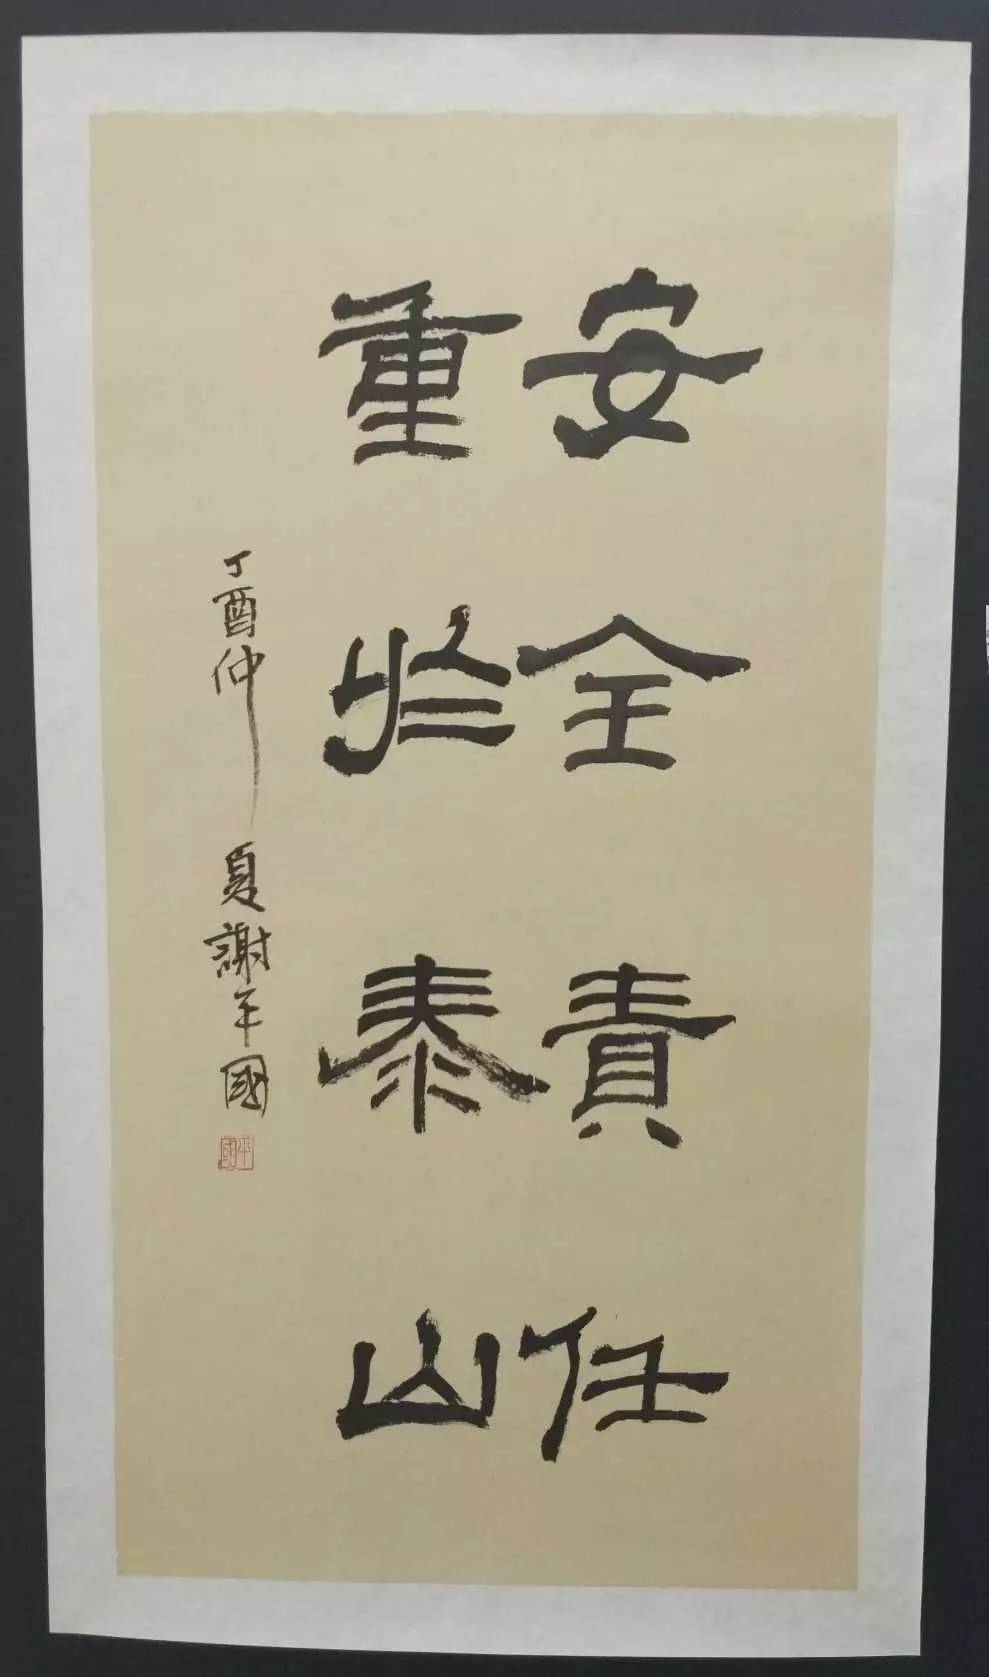 安全責任
重於泰山
丁酉仲夏謝平國
平國